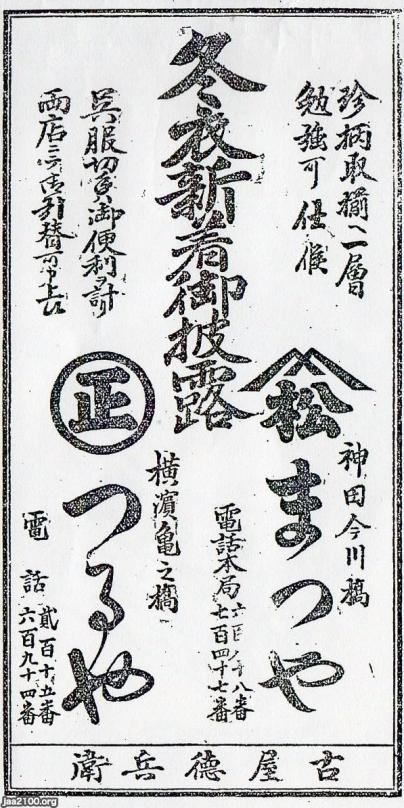 珍柄取揃へ一層
勉強可仕候
冬衣新着御披露
呉服切手御便利ヲ計
両店ニテ
松
神田今川橋
まつや
電話本局
七百四十七番
正
横濱亀之橋
つるや
電話
貳百十五番
六百九十四番
古屋徳兵衛
jaa2100.org